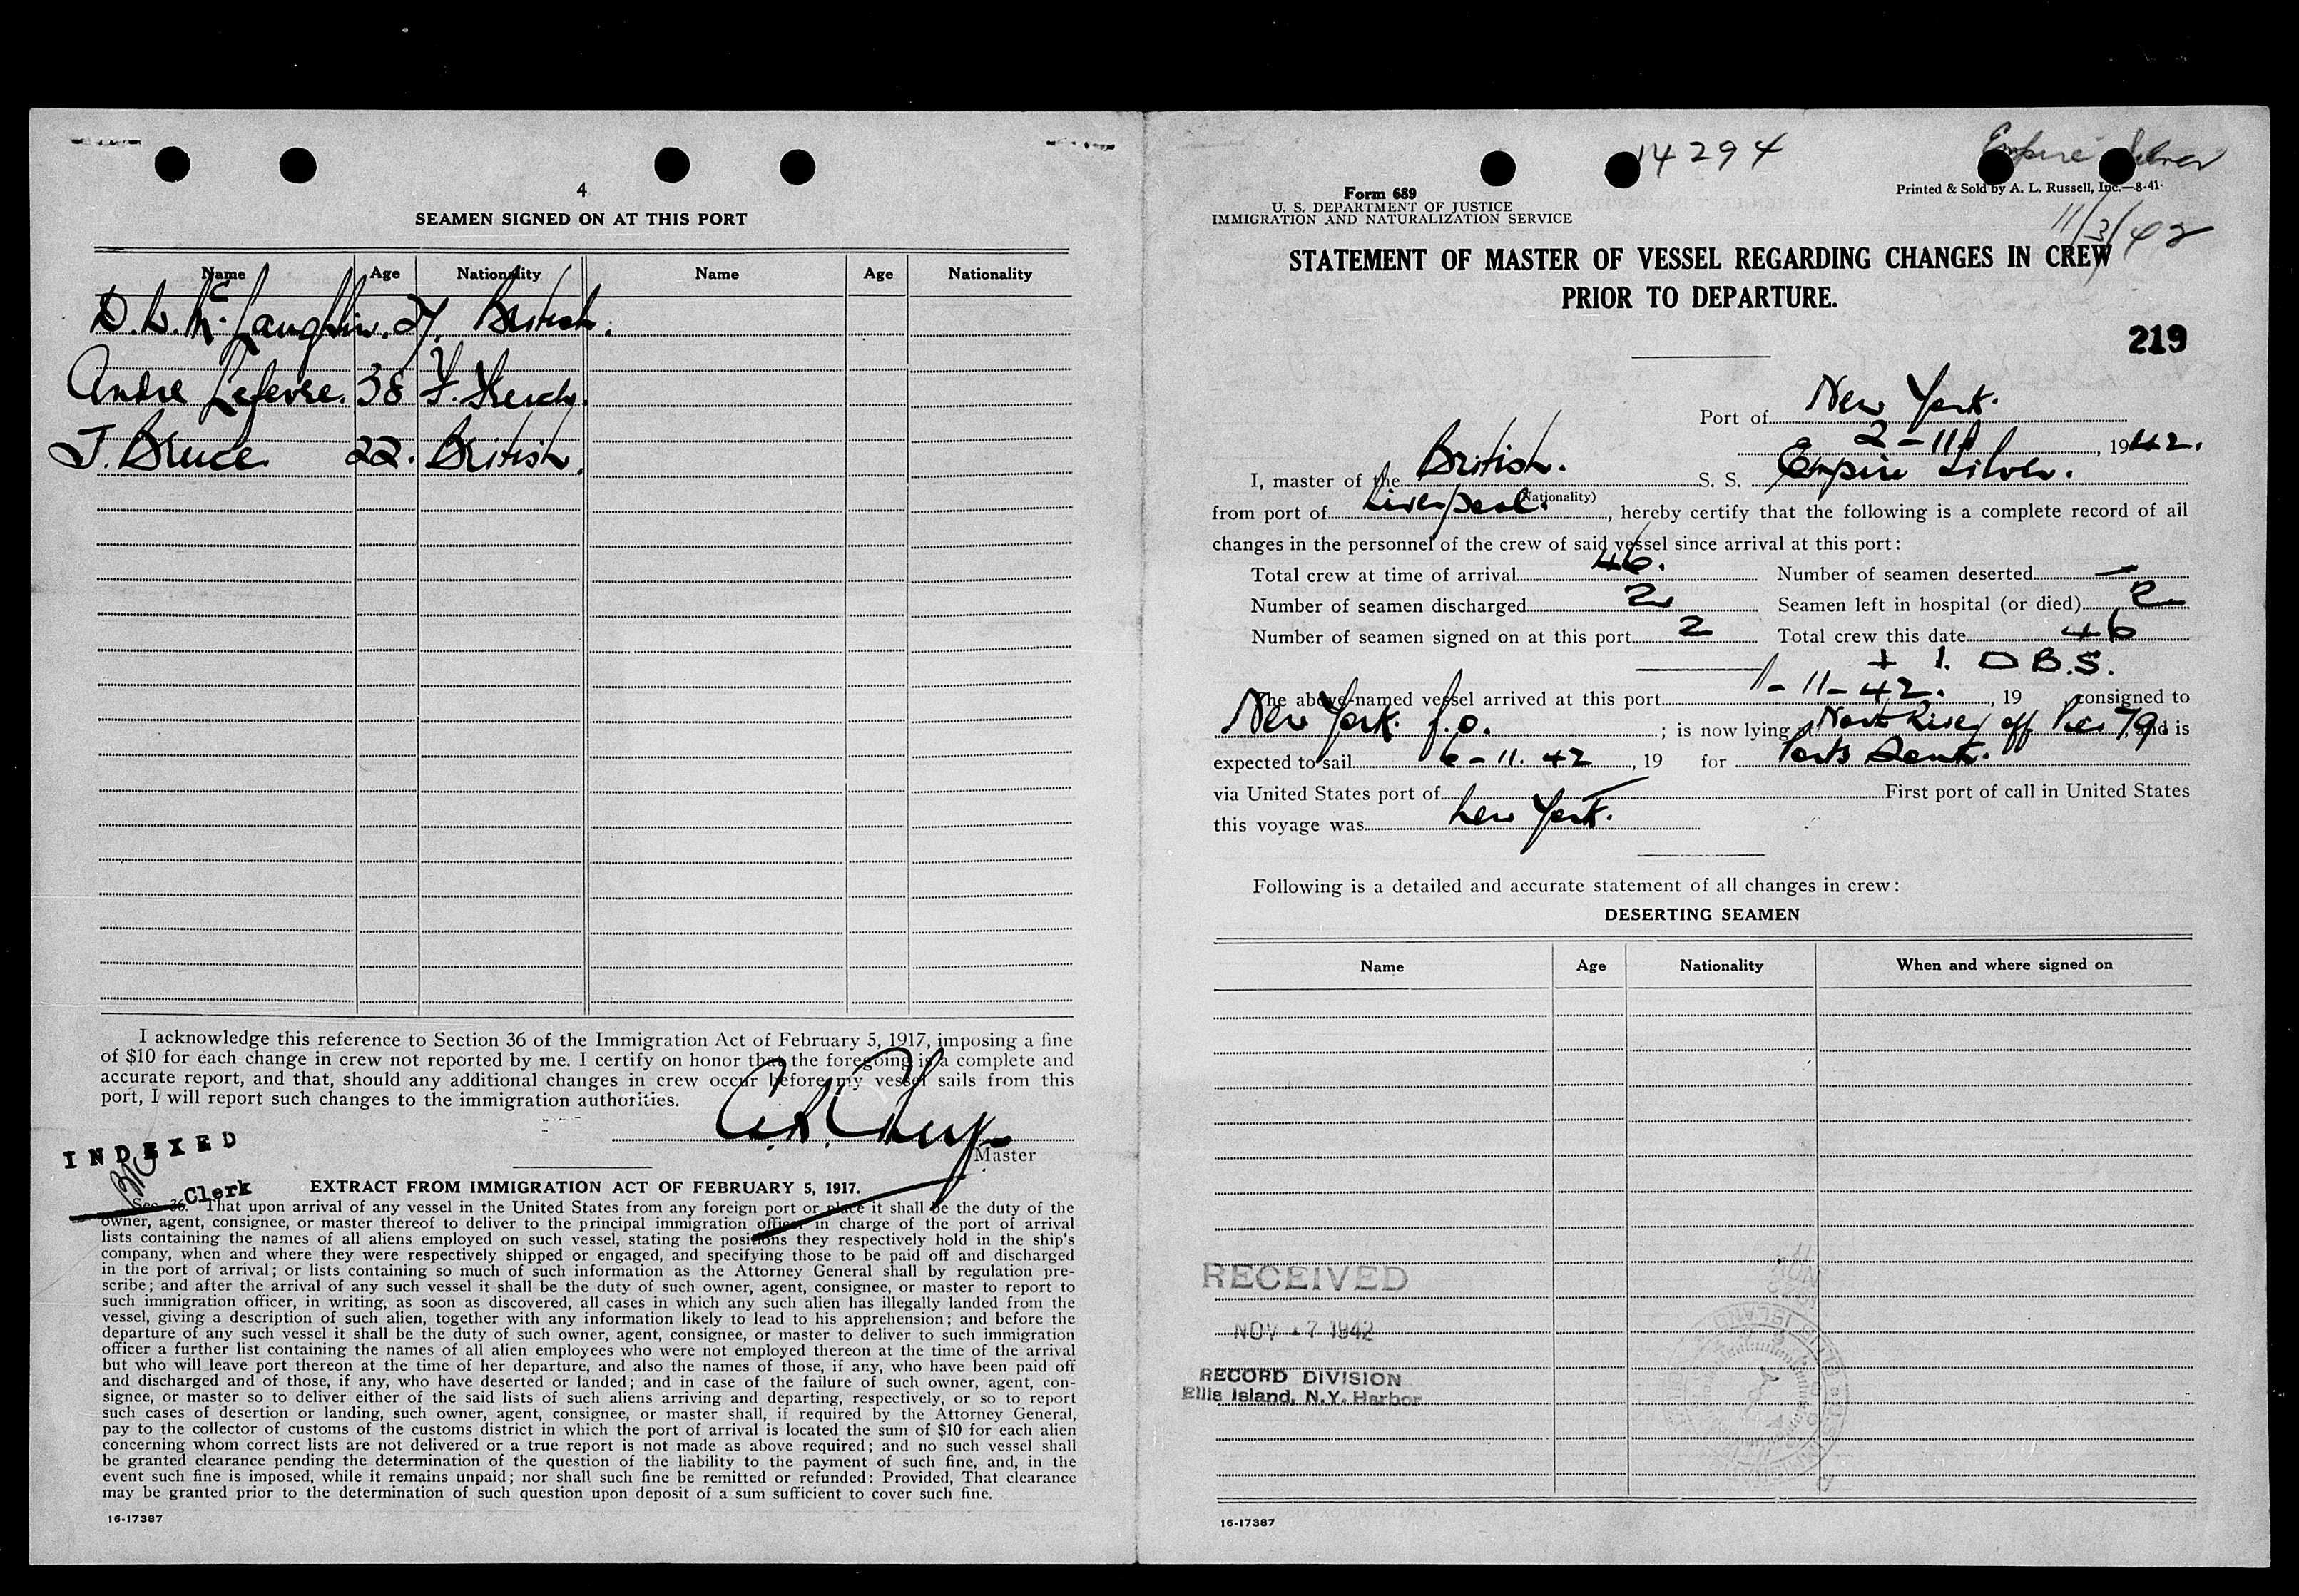 4
SEAMEN SIGNED ON AT THIS PORT
Name Age Nationality Name Age Nationality
D. W. McLaughlin. 27. British.
Andre Lefevre. 38 F. French.
J. Bruce 22. British.
I acknowledge this reference to Section 36 of the Immigration Act of February 5, 1917, imposing a fine
of $10 for each change in crew not reported by me. I certify on honor that the foregoing is a complete and
accurate report, and that, should any additional changes in crew occur before my vessel sails from this
port, I will report such changes to the immigration authorities.
Master
INDEXED
Clerk
EXTRACT FROM IMMIGRATION ACT OF FEBRUARY 5, 1917.
Sec. 36. That upon arrival of any vessel in the United States from any foreign port or place it shall be the duty of the
owner, agent, consignee, or master thereof to deliver to the principal immigration officer in charge of the port of arrival
lists containing the names of all aliens employed on such vessel, stating the positions they respectively hold in the ship's
company, when and where they were respectively shipped or engaged, and specifying those to be paid off and discharged
in the port of arrival; or lists containing so much of such information as the Attorney General shall by regulation pre-
scribe; and after the arrival of any such vessel it shall be the duty of such owner, agent, consignee, or master to report to
such immigration officer, in writing, as soon as discovered, all cases in which any such alien has illegally landed from the
vessel, giving a description of such alien, together with any information likely to lead to his apprehension; and before the
departure of any such vessel it shall be the duty of such owner, agent, consignee, or master to deliver to such immigration
officer a further list containing the names of all alien employees who were not employed thereon at the time of the arrival
but who will leave port thereon at the time of her departure, and also the names of those, if any, who have been paid off
and discharged and of those, if any, who have deserted or landed; and in case of the failure of such owner, agent, con-
signee, or master so to deliver either of the said lists of such aliens arriving and departing, respectively, or so to report
such cases of desertion or landing, such owner, agent, consignee, or master shall, if required by the Attorney General,
pay to the collector of customs of the customs district in which the port of arrival is located the sum of $10 for each alien
concerning whom correct lists are not delivered or a true report is not made as above required; and no such vessel shall
be granted clearance pending the determination of the question of the liability to the payment of such fine, and, in the
event such fine is imposed, while it remains unpaid; nor shall such fine be remitted or refunded: Provided, That clearance
may be granted prior to the determination of such question upon deposit of a sum sufficient to cover such fine.
16-17387
14294 Empire Silver
Form 689
U. S. DEPARTMENT OF JUSTICE
IMMIGRATION AND NATURALIZATION SERVICE
Printed & Sold by A. L. Russell, Inc.—8-41
11/3/42
STATEMENT OF MASTER OF VESSEL REGARDING CHANGES IN CREW
PRIOR TO DEPARTURE.
219
Port of New York.
2-11, 1942.
I, master of the British. S. S. Empire Silver.
(Nationality)
from port of Liverpool., hereby certify that the following is a complete record of all
changes in the personnel of the crew of said vessel since arrival at this port:
Total crew at time of arrival 46. Number of seamen deserted —
Number of seamen discharged 2 Seamen left in hospital (or died) 2
Number of seamen signed on at this port 2 Total crew this date 46
+ 1. D B.S.
The above-named vessel arrived at this port 1-11-42., 19 consigned to
New York. f.o.; is now lying at North River off Pier 79, and is
expected to sail 6-11.42, 19 for
via United States port of — First port of call in United States
this voyage was New York.
Following is a detailed and accurate statement of all changes in crew:
DESERTING SEAMEN
Name Age Nationality When and where signed on
RECEIVED
NOV 17 1942
RECORD DIVISION
Ellis Island, N.Y. Harbor
16-17387